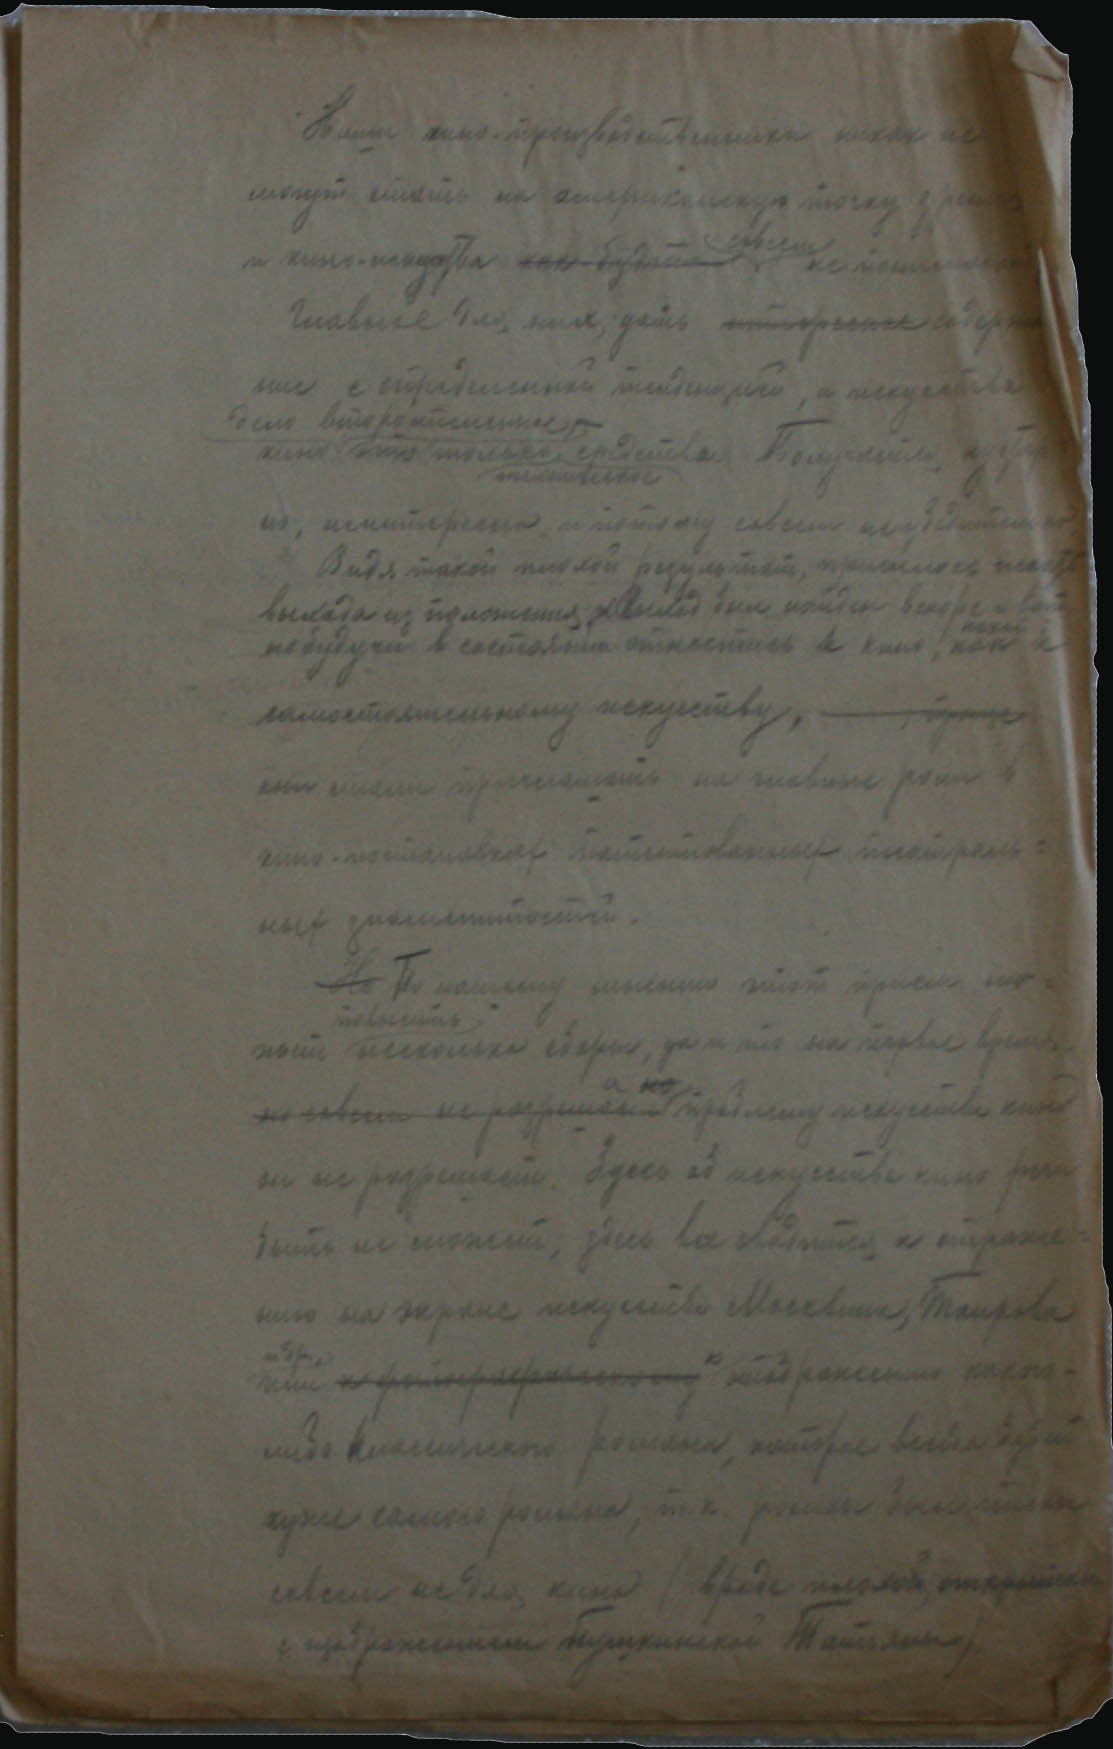 Наши кино-производственники никак не
могут стать на американскую точку зрения
и кино-искусства как будто совсем не понимают
Главное для них, дать интересное содержа
ние с определенной тенденцией, а искусство
дело второстепенное,
кино это только средство. Получается
техническое
но, неинтересно и потому совсем неубедительно
Видя такой плохой результат, пришлось искать
выхода из положения, выход был найден вскоре и вот
небудучи в состоянии отнестись к кино, как к
самостоятельному искусству,
они стали приглашать на главные роли в
кино-постановках патентованных театраль=
ных знаменитостей.
Но По нашему мнению этот прием мо-
повысить
жет несколько сборы, да и то на первое время,
но совсем не разрешает а но проблему искусства кино
он не разрешает. Здесь об искусстве кино речи
быть не может, здесь все сводится к отраже=
нию на экране искусства Москвина, Таирова
и др.,
или к фотографическому к отображению какого-
либо классического романа, которое всегда будет
хуже самого романа, т.к. роман был писан
совсем не для кино (вроде плохой открытки
с изображением Пушкинской Татьяны).